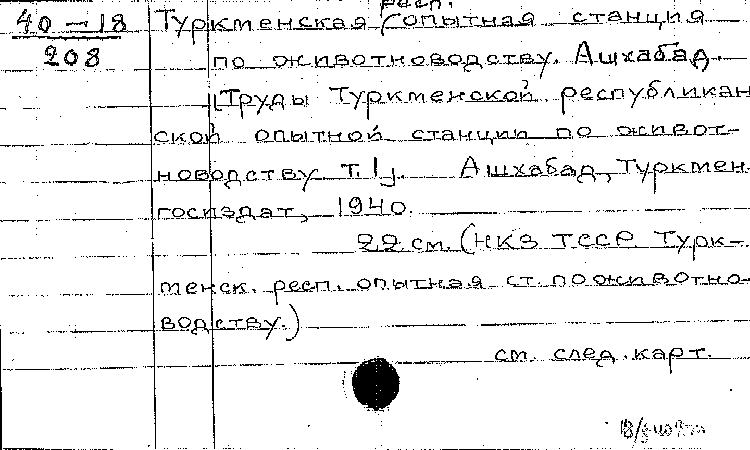 40-18
208
респ.
Туркменская опытная станция
по животноводству. Ашхабад.
[Труды Туркменской республикан
ской опытной станции по живот-
новодству т. I].  Ашхабад, Туркмен-
госиздат, 1940.
22 см. (НКЗ ТССР Турк-
менск. респ. опытная ст. по животно-
водству.)
см. след. карт.